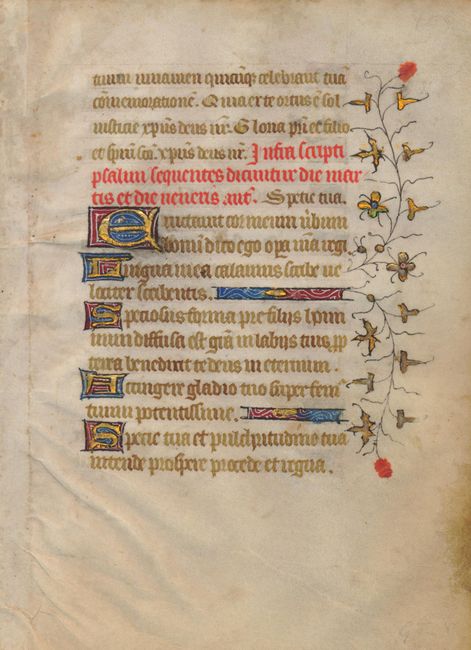 tuum iuuamen quicūq; celebrant tuā
cōmemorationē. Quia ex te ortus ē sol
iusticie xp̄us deus nr̄. Gloria pr̄i et filio
et spūi scō. xp̄us deus nr̄. Infra scripti
psalmi sequentes dicuntur die mar
tis et die ueneris. ant̄. Specie tua.
Eructauit cor meum u̅bum
bonū dico ego op̄a m̄a regi.
Lingua mea calamus scribe ue
lociter scribentis.
Speciosus forma pre filijs homi
num diffusa est grā̄ in labijs tuis, pp̄
terea benedixit te deus in eternum.
Accingere gladio tuo super fem̄
tuum potentissime.
Specie tua et pulchritudine tua
intende prospere procede et regna.